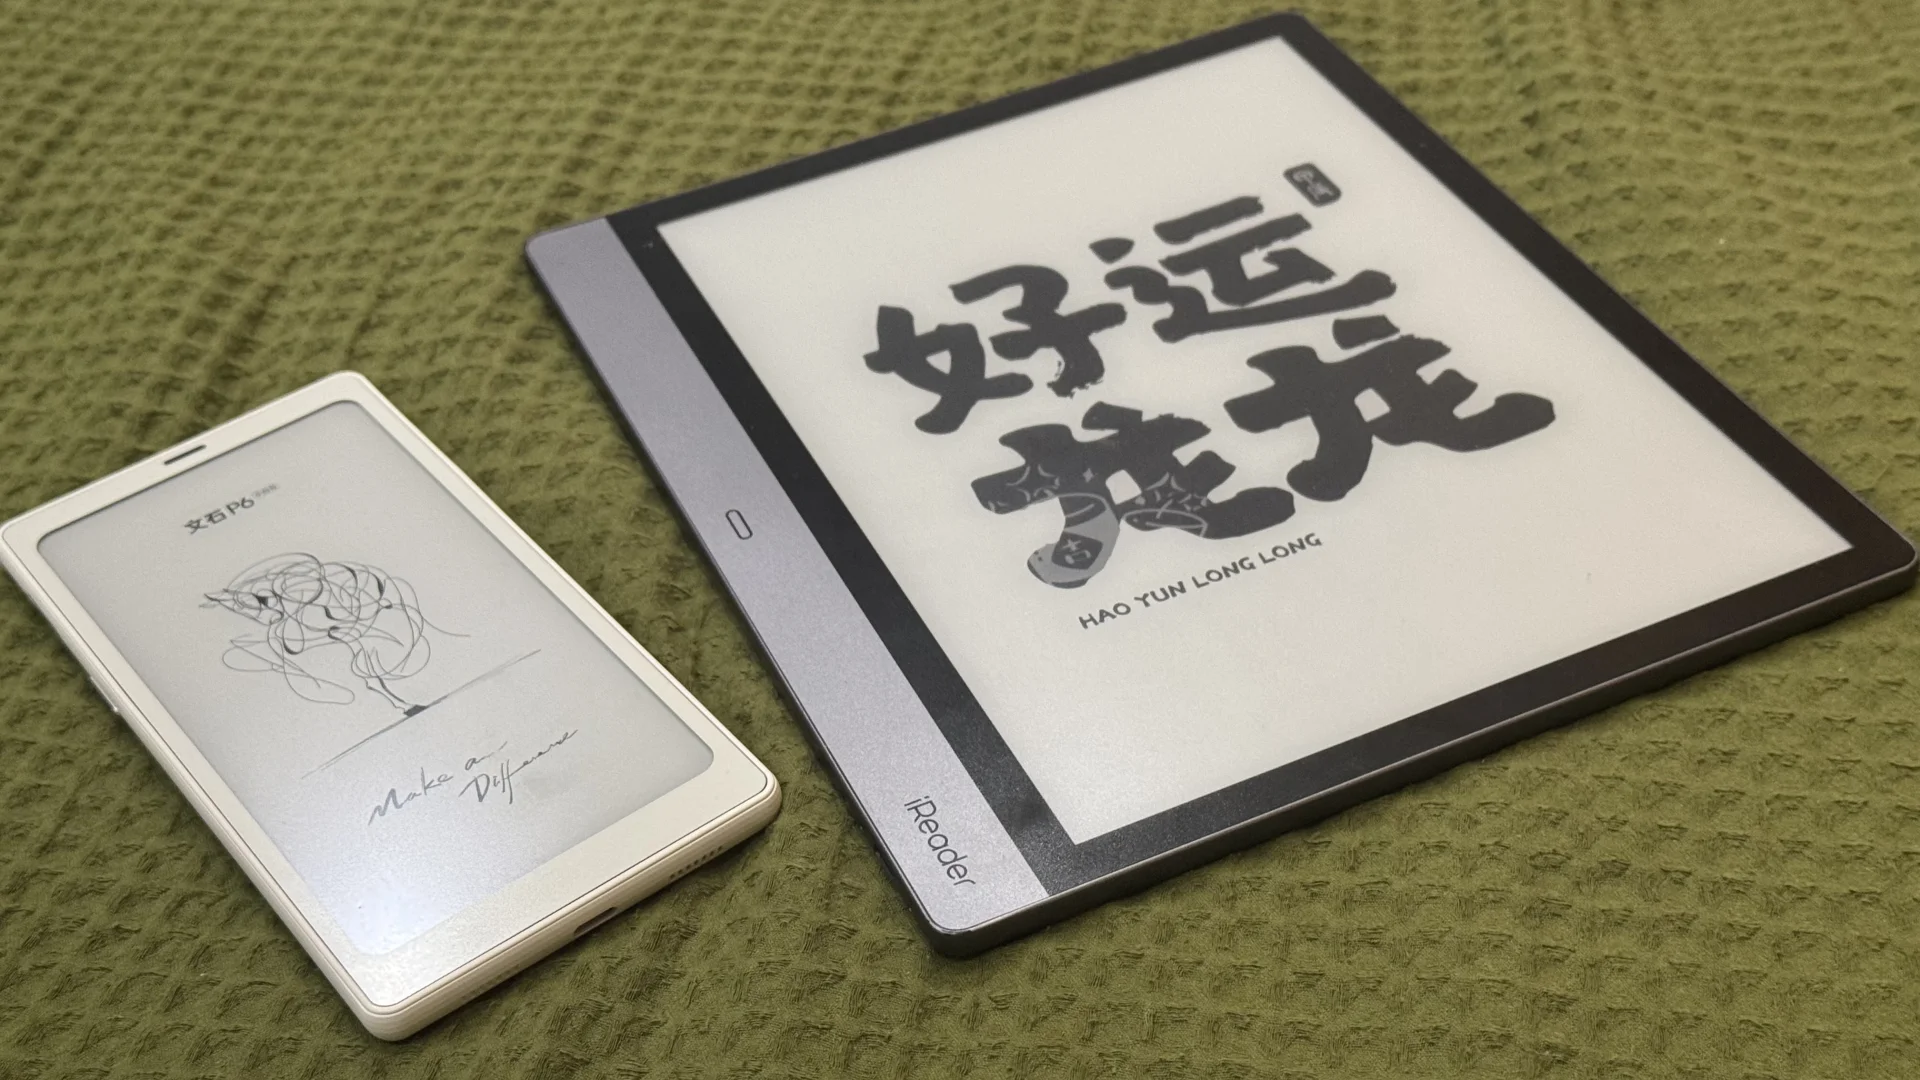 文石 P6
Make a
Difference
好运
龙龙
吉
HAO YUN LONG LONG
iReader